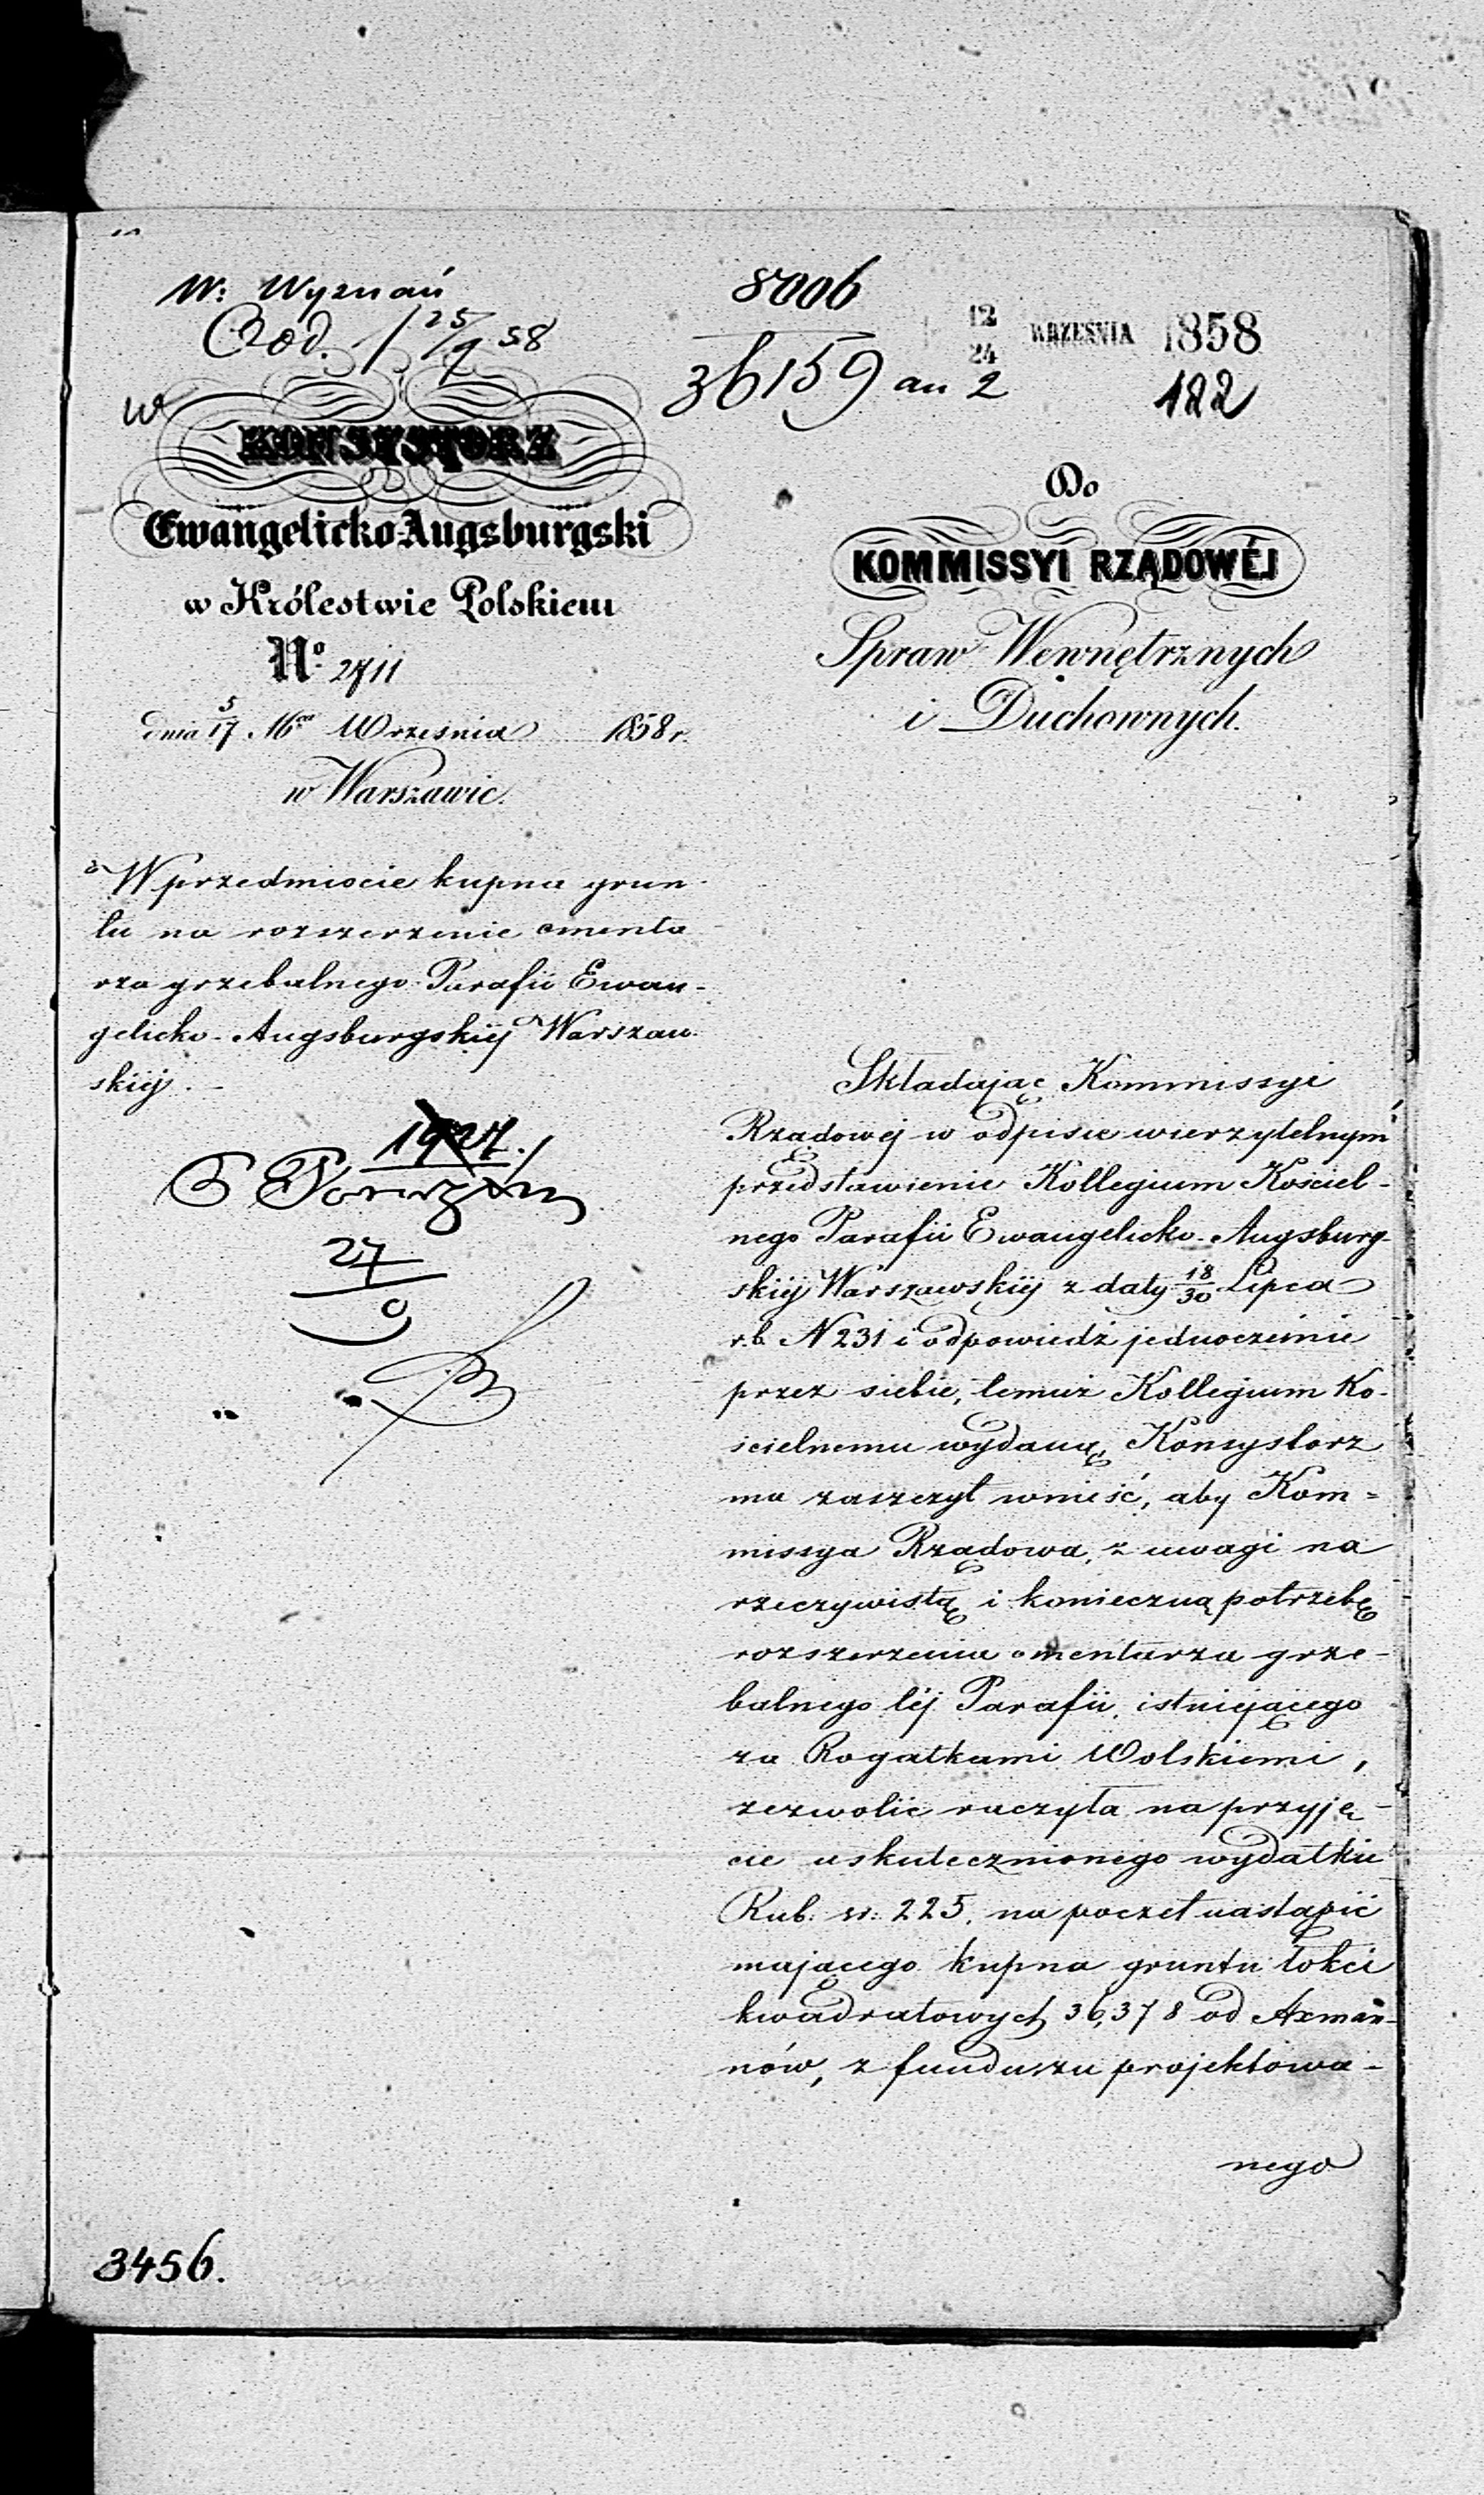 W: Wyznań
25/9 58
8006
36159 au 2
12/24 WRZEŚNIA 1858
122
w
KONSYSTORZ
Ewangelicko-Augsburgski
w Królestwie Polskiem
No 2711
dnia 5/17 Września 1858 r.
w Warszawie.
W przedmiocie kupna grun-
tu na rozszerzenie cmenta
rza grzebalnego Parafii Ewan-
gelicko-Augsburgskiej Warszaw-
skiej.
1927.
27
9
Do
KOMMISSYI RZĄDOWÉJ
Spraw Wewnętrznych
i Duchownych.
Składając Kommissyi
Rządowej w odpisie wierzytelnym
przedstawienie Kollegium Kościel-
nego Parafii Ewangelicko-Augsburg-
skiej Warszawskiej z daty 18/30 Lipca
r.b. N 231 i odpowiedź jednocześnie
przez siebie, temuż Kollegium Ko-
ścielnemu wydaną, Konsystorz
ma zaszczyt wnieść, aby Kom=
missya Rządowa, z uwagi na
rzeczywistą i konieczną potrzebę
rozszerzenia cmentarza grze-
balnego téj Parafii, istniejącego
za Rogatkami Wolskiemi,
zezwolić raczyła na przyję-
cie uskutecznionego wydatku
Rub. sr. 225, na poczet nastąpić
mającego kupna gruntu łokci
kwadratowych 36,378 od Axman-
nów, z funduszu projektowa-
nego
3456.